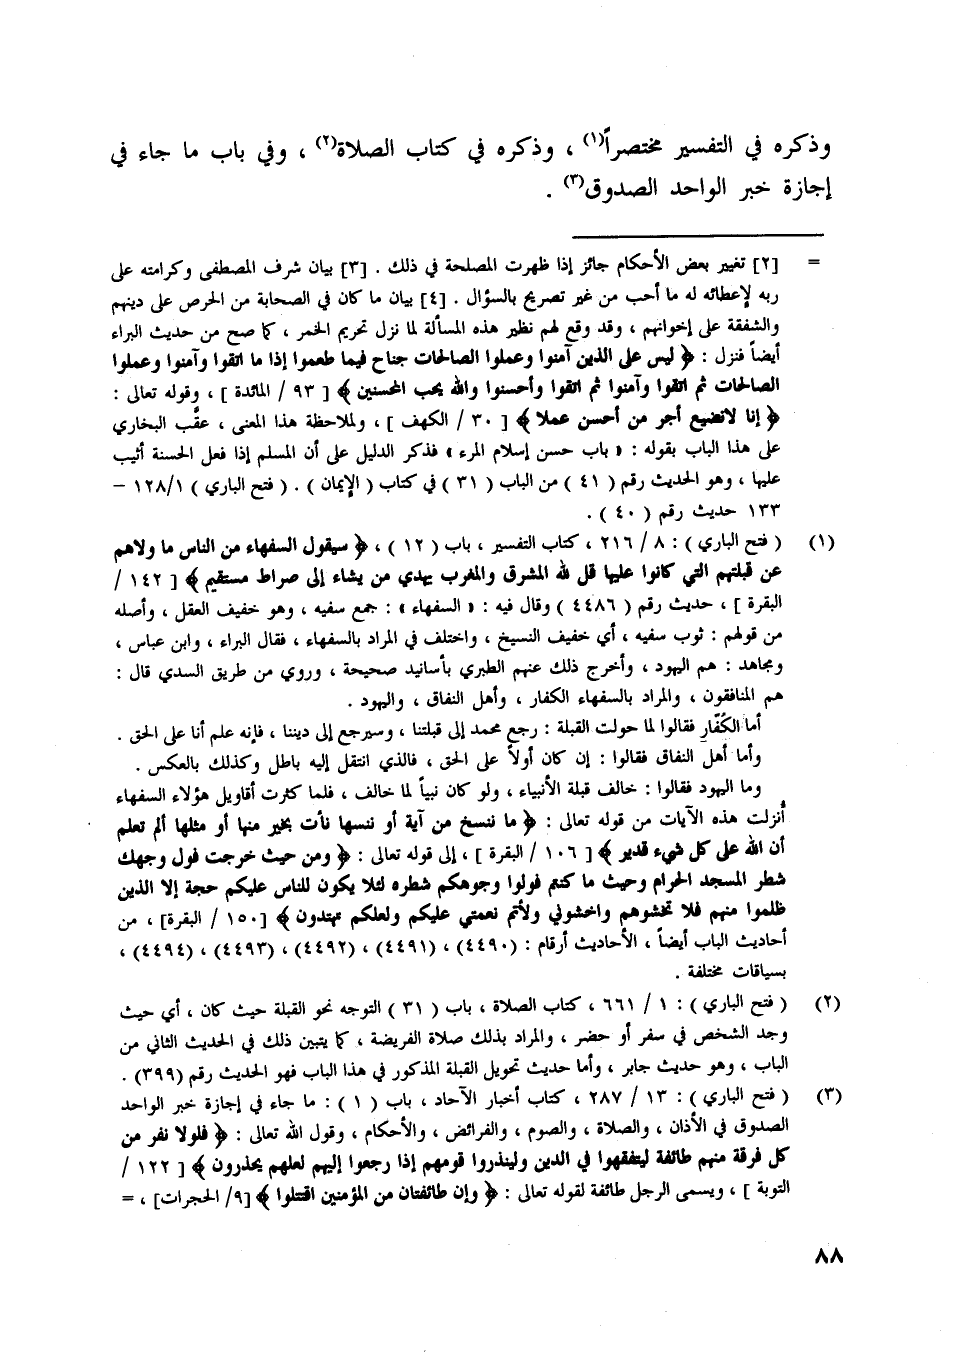 وذكره في التفسير مختصراً(١) ، وذكره في كتاب الصلاة(٢) ، وفي باب ما جاء في
إجازة خبر الواحد الصدوق(٣) .
= [٢] تغيير بعض الأحكام جائز إذا ظهرت المصلحة في ذلك . [٣] بيان شرف المصطفى وكرامته على
ربه لإعطائه له ما أحب من غير تصريح بالسؤال . [٤] بيان ما كان في الصحابة من الحرص على دينهم
والشفقة على إخوانهم ، وقد وقع لهم نظير هذه المسألة لما نزل تحريم الخمر ، كما صح من حديث البراء
أيضاً فنزل : ﴿ ليس على الذين آمنوا وعملوا الصالحات جناح فيما طعموا إذا ما اتقوا وآمنوا وعملوا
الصالحات ثم اتقوا وآمنوا ثم اتقوا وأحسنوا والله يحب المحسنين ﴾ [ ٩٣ / المائدة ] ، وقوله تعالى :
﴿ إنا لا نضيع أجر من أحسن عملا ﴾ [ ٣٠ / الكهف ] ، ولملاحظة هذا المعنى ، عقَّب البخاري
على هذا الباب بقوله : « باب حسن إسلام المرء » فذكر الدليل على أن المسلم إذا فعل الحسنة أثيب
عليها ، وهو الحديث رقم ( ٤١ ) من الباب ( ٣١ ) في كتاب ( الإيمان ) . ( فتح الباري ) ١٢٨/١ –
١٣٣ حديث رقم ( ٤٠ ) .
(١) ( فتح الباري ) : ٨ / ٢١٦ ، كتاب التفسير ، باب ( ١٢ ) ، ﴿ سيقول السفهاء من الناس ما ولاهم
عن قبلتهم التي كانوا عليها قل لله المشرق والمغرب يهدي من يشاء إلى صراط مستقيم ﴾ [ ١٤٢ /
البقرة ] ، حديث رقم ( ٤٤٨٦ ) وقال فيه : « السفهاء » : جمع سفيه ، وهو خفيف العقل ، وأصله
من قولهم : ثوب سفيه ، أي خفيف النسيخ ، واختلف في المراد بالسفهاء ، فقال البراء ، وابن عباس ،
ومجاهد : هم اليهود ، وأخرج ذلك عنهم الطبري بأسانيد صحيحة ، وروي من طريق السدي قال :
هم المنافقون ، والمراد بالسفهاء الكفار ، وأهل النفاق ، واليهود .
أما الكُفّارِ فقالوا لما حولت القبلة : رجع محمد إلى قبلتنا ، وسيرجع إلى ديننا ، فإنه علم أنا على الحق .
وأما أهل النفاق فقالوا : إن كان أولاً على الحق ، فالذي انتقل إليه باطل وكذلك بالعكس .
وما اليهود فقالوا : خالف قبلة الأنبياء ، ولو كان نبياً لما خالف ، فلما كثرت أقاويل هؤلاء السفهاء
أُنزلت هذه الآيات من قوله تعالى : ﴿ ما ننسخ من آية أو ننسها نأت بخير منها أو مثلها ألم تعلم
أن الله على كل شيء قدير ﴾ [ ١٠٦ / البقرة ] ، إلى قوله تعالى : ﴿ ومن حيث خرجت فول وجهك
شطر المسجد الحرام وحيث ما كنتم فولوا وجوهكم شطره لئلا يكون للناس عليكم حجة إلا الذين
ظلموا منهم فلا تخشوهم واخشوني ولأتم نعمتي عليكم ولعلكم تهتدون ﴾ [١٥٠ / البقرة] ، من
أحاديث الباب أيضاً ، الأحاديث أرقام : (٤٤٩٠) ، (٤٤٩١) ، (٤٤٩٢) ، (٤٤٩٣) ، (٤٤٩٤) ،
بسياقات مختلفة .
(٢) ( فتح الباري ) : ١ / ٦٦١ ، كتاب الصلاة ، باب ( ٣١ ) التوجه نحو القبلة حيث كان ، أي حيث
وجد الشخص في سفر أو حضر ، والمراد بذلك صلاة الفريضة ، كما يتبين ذلك في الحديث الثاني من
الباب ، وهو حديث جابر ، وأما حديث تحويل القبلة المذكور في هذا الباب فهو الحديث رقم (٣٩٩) .
(٣) ( فتح الباري ) : ١٣ / ٢٨٧ ، كتاب أخبار الآحاد ، باب ( ١ ) : ما جاء في إجازة خبر الواحد
الصدوق في الأذان ، والصلاة ، والصوم ، والفرائض ، والأحكام ، وقول الله تعالى : ﴿ فلولا نفر من
كل فرقة منهم طائفة ليتفقهوا في الدين ولينذروا قومهم إذا رجعوا إليهم لعلهم يحذرون ﴾ [ ١٢٢ /
التوبة ] ، ويسمى الرجل طائفة لقوله تعالى : ﴿ وإن طائفتان من المؤمنين اقتتلوا ﴾ [٩/ الحجرات] ، =
٨٨